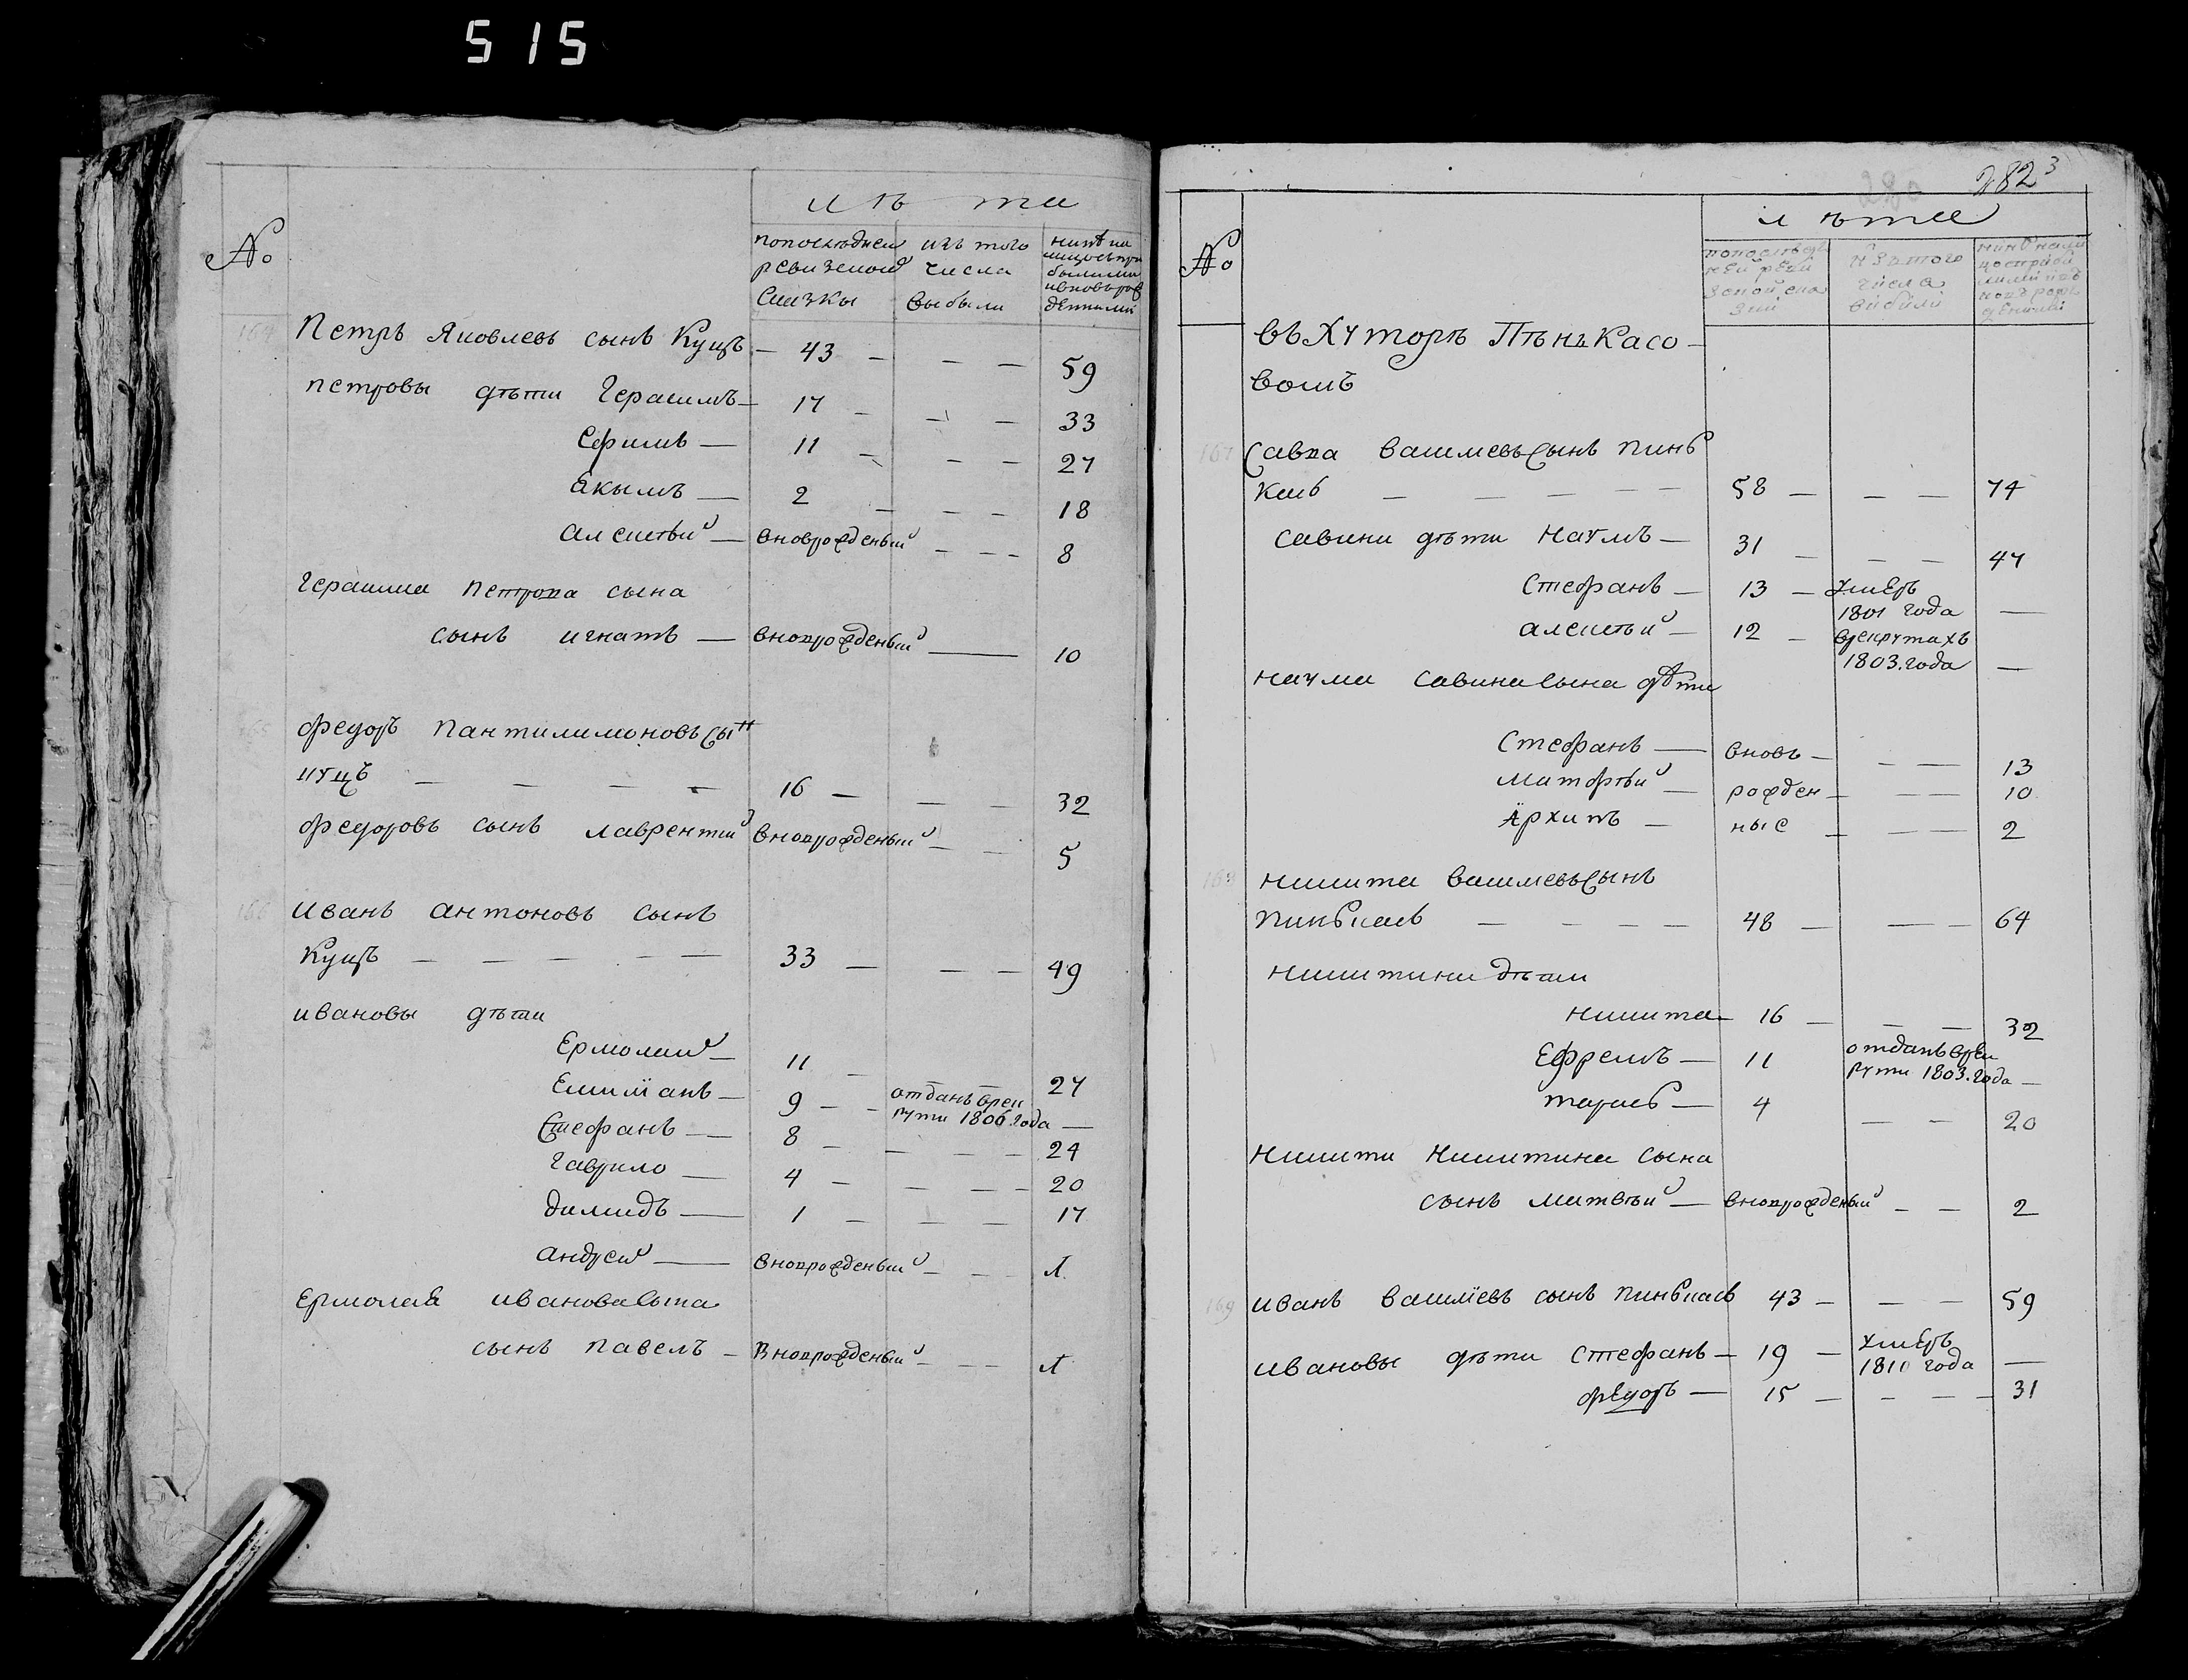 515
№
лѣта
попоследнеи ревизскои сказкы
изъ того числа выбыли
164 Петръ Яковлевъ сынъ Куцъ — 43 — — — 59
петровы дѣти Герасимъ — 17 — — — 33
Ефимъ — 11 — — — 27
Екымъ — 2 — — — 18
алексѣй — вновроженый — — — 8
Герасима петрова сына
сынъ игнатъ — вновроженый — 10
165 федоръ пантилимоновъ сын
куцъ — — — — 16 — — — 32
федоровъ сынъ лаврентий вновроженый — — 5
166 иванъ антоновъ сынъ
Куцъ — — — — — 33 — — — 49
ивановы дѣти
Ермолай — 11 — 27
Емилианъ — 9 — — отданъ врекруты 1806. года —
Стефанъ — 8 — — — — 24
Гаврило — 4 — — — — 20
димидъ — 1 — — — 17
андрей — вновроженый — — 1.
Ермолая иванова сына
сынъ павелъ — вновроженый — — — 1
282
3
280
№
лѣта
изътого числа вибили
въ Хуторѣ Пѣнъкасо-
вомъ
167 Савва василевъ сынъ пинь
касъ — — — — — 58 — — — 74
савини дѣти наумъ — 31 — — — 47
Стефанъ — 13 — умеръ 1801 года —
алексѣй — 12 — врекрутахъ 1803. года —
наума савина сына дѣти
Стефанъ — вновь — — — 13
матфѣй — рожден — — — 10
Архипъ — ные — — — 2
168 никита василевъ сынъ
пинькасъ — — — — 48 — — — 64
никитини дѣти
никита — 16 — — — 32
Ефремъ — 11 отданъ врекруты 1803. года —
тарасъ — 4 — — 20
никиты никитина сына
сынъ матвѣй — вновроженый — — 2
169 иванъ василиевъ сынъ пинькасъ 43 — — — 59
ивановы дѣти Стефанъ — 19 — умеръ 1810 года —
федоръ — 15 — — — — 31